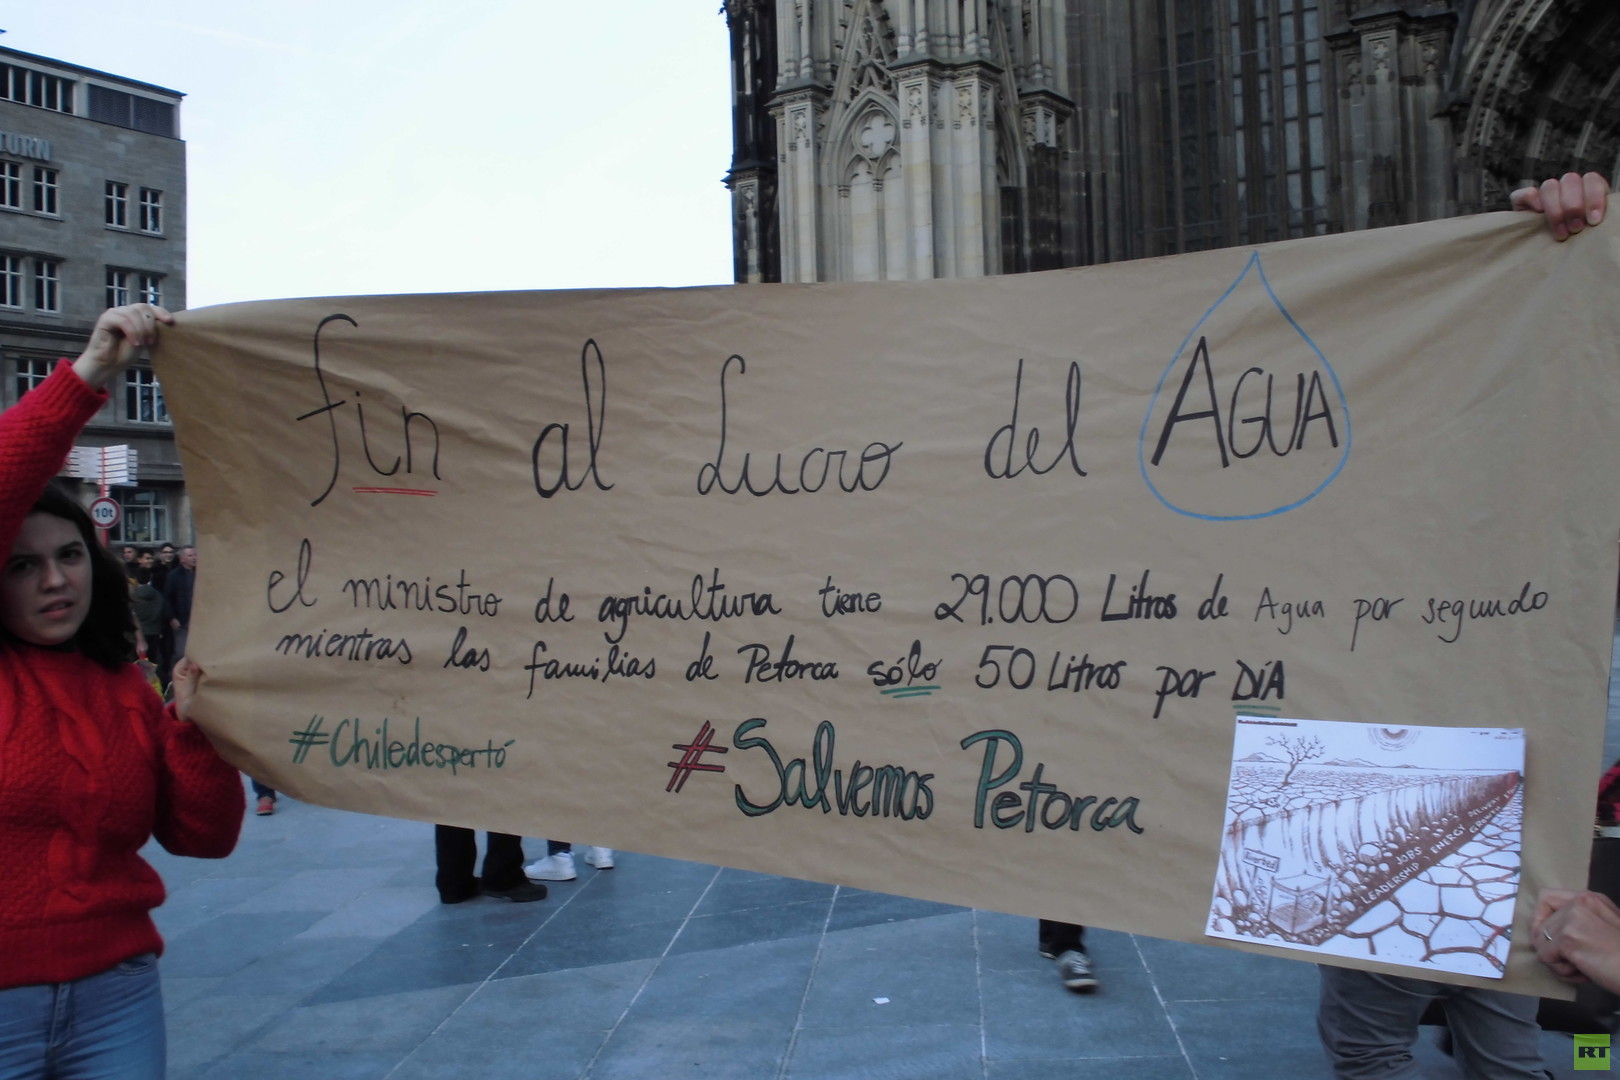 TURN
10t
fin al Lucro del AGUA
el ministro de agricultura tiene 29.000 Litros de Agua por segundo
mientras las familias de Petorca sólo 50 Litros por DíA
#Chiledespertó
#Salvemos Petorca
Riverbed
JOBS ENERGY DELIVERY
LEADERSHIP GROWTH
RT